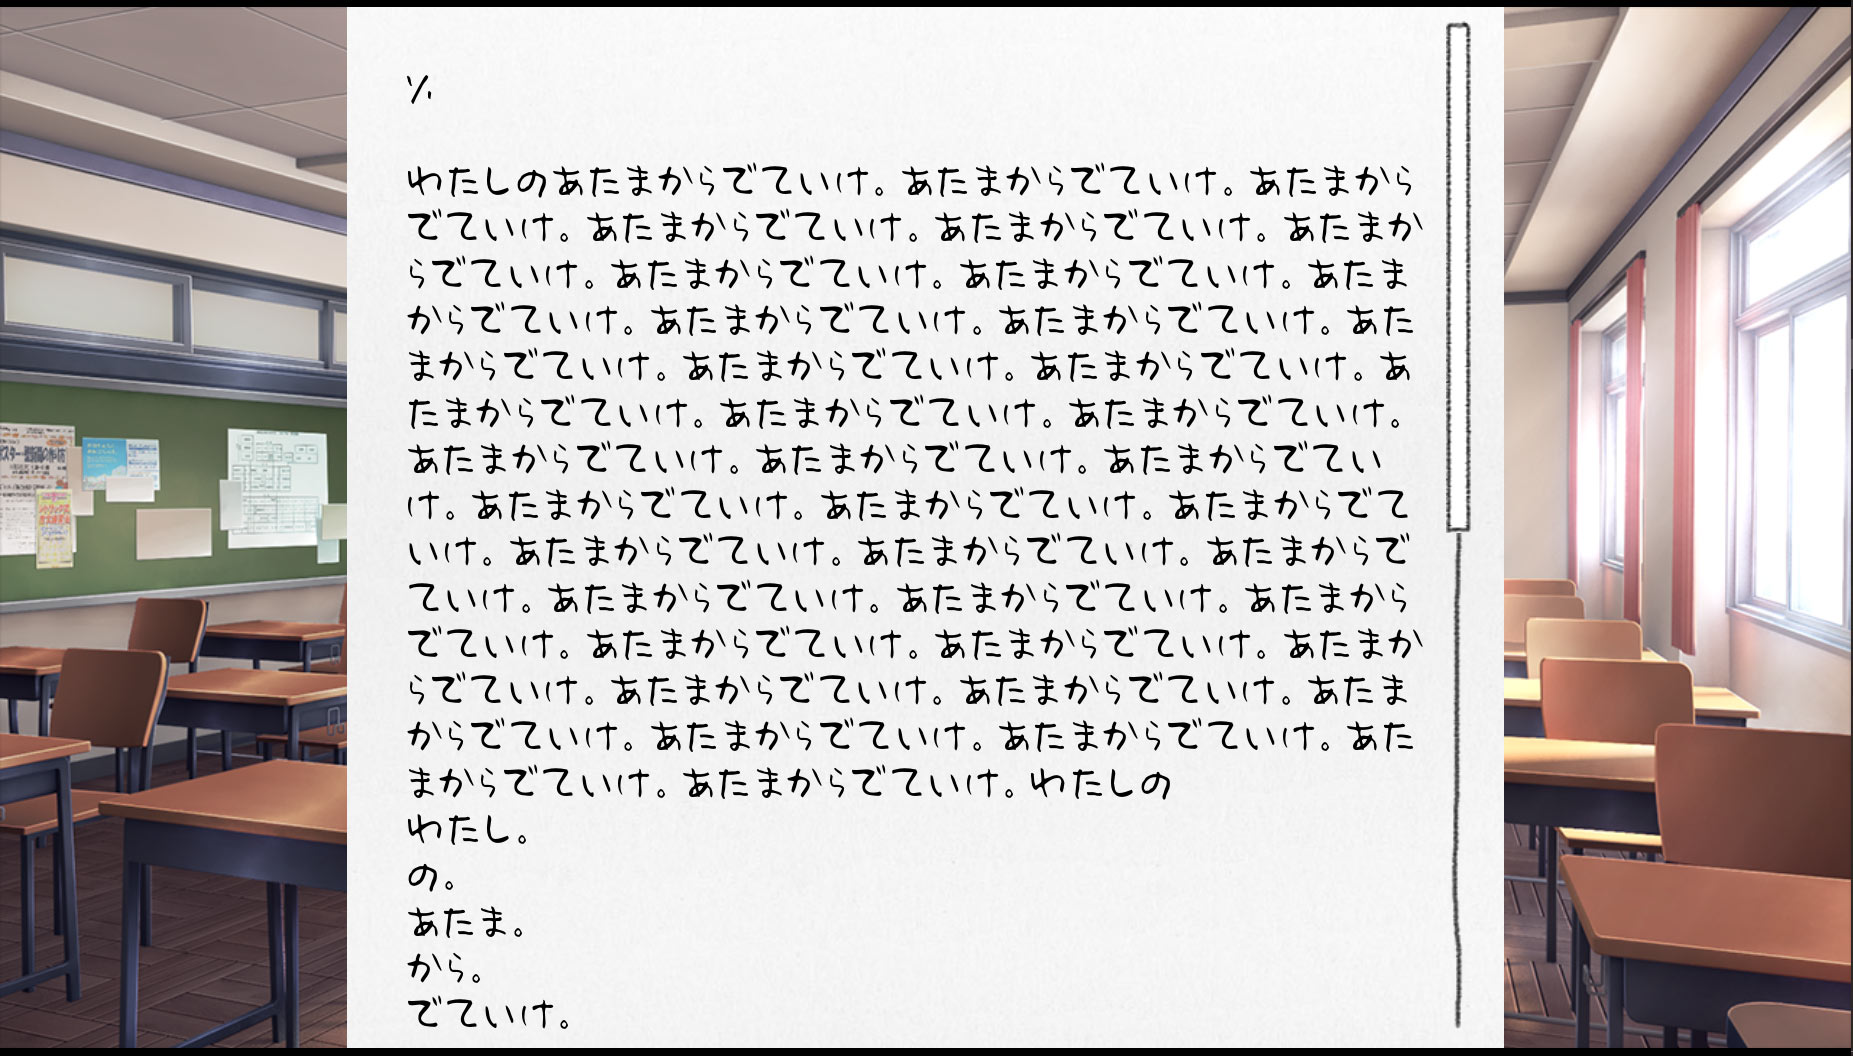 %
わたしのあたまからでていけ。あたまからでていけ。あたまから
でていけ。あたまからでていけ。あたまからでていけ。あたまか
らでていけ。あたまからでていけ。あたまからでていけ。あたま
からでていけ。あたまからでていけ。あたまからでていけ。あた
まからでていけ。あたまからでていけ。あたまからでていけ。あ
たまからでていけ。あたまからでていけ。あたまからでていけ。
あたまからでていけ。あたまからでていけ。あたまからでてい
け。あたまからでていけ。あたまからでていけ。あたまからでて
いけ。あたまからでていけ。あたまからでていけ。あたまからで
ていけ。あたまからでていけ。あたまからでていけ。あたまから
でていけ。あたまからでていけ。あたまからでていけ。あたまか
らでていけ。あたまからでていけ。あたまからでていけ。あたま
からでていけ。あたまからでていけ。あたまからでていけ。あた
まからでていけ。あたまからでていけ。わたしの
わたし。
の。
あたま。
から。
でていけ。